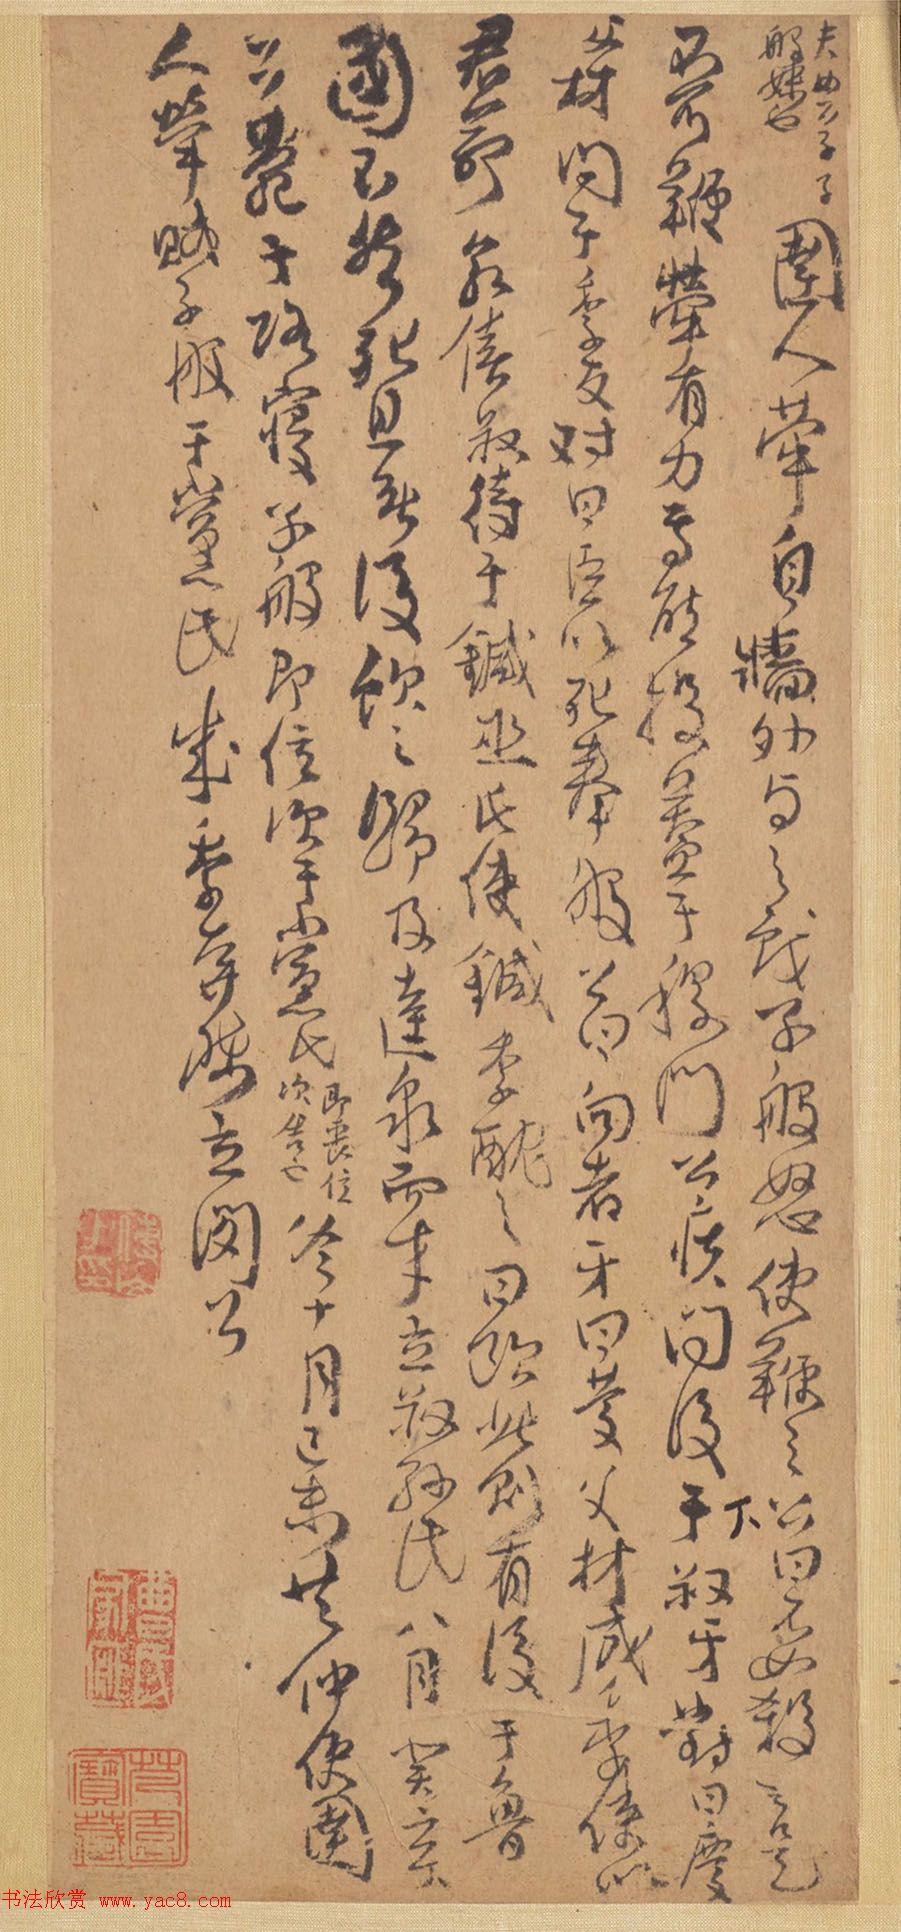 女公子子
般妹也
圉人犖自牆外与之戲子般怒使鞭之公曰不如殺之是
不可鞭犖有力焉能投蓋于稷門公疾問後于叔牙對曰慶
父材問于季友对曰臣以死奉般公曰向者牙曰慶父材成季使以
君命命僖叔待于鍼巫氏使鍼季酖之曰飲此則有後于魯
國不然死且無後飲之歸及逵泉而卒立叔孫氏八月癸亥
公薨于路寢子般即位次于黨氏
即喪位
次舍也
冬十月己未共仲使圉
人犖賊子般于黨氏成季奔陳立閔公
书法欣赏 www.yac8.com